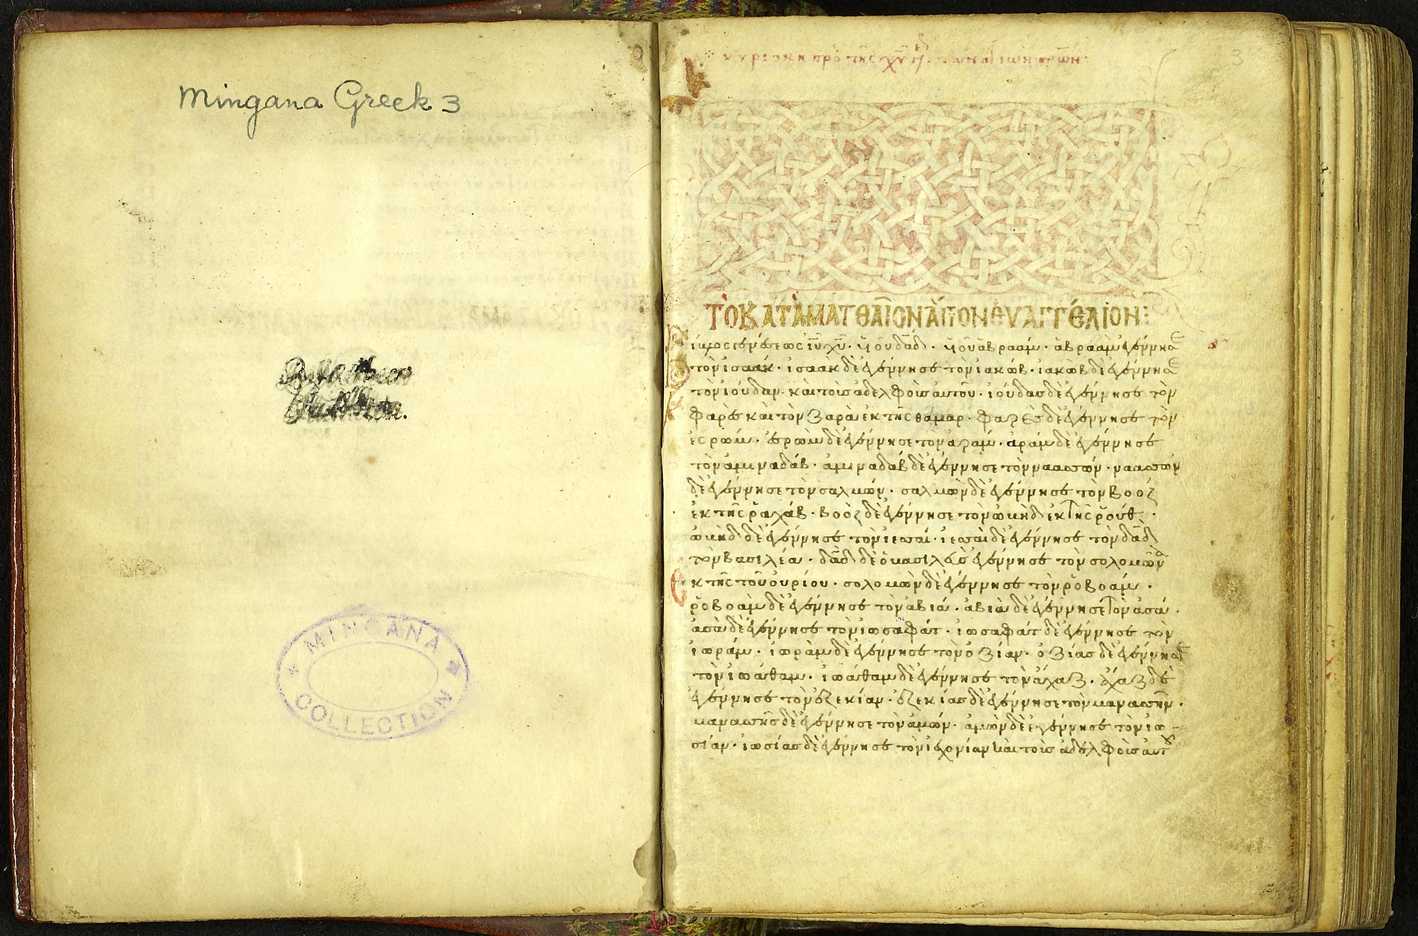 Mingana Greek 3
MINGANA
COLLECTION
3
κυριακη προ της χυ
ΤὸΚΑΤᾺΜΑΤΘΑῖΟΝἍΓΙΟΝἘΥΑΓΓΈΛΙΟΝ:
βίβλος γενέσεως ιυ χυ· υιου δαδ· υιου αβραάμ· αβραὰμ εγέννησε
τὸν ισαάκ· ισαακ δὲ εγέννησε τὸν ιακώβ· ιακὼβ δὲ εγέννησε
τὸν ιούδαν· και τους αδελφους αυτου· ιούδας δὲ εγέννησε τὸν
φαρὲς και τὸν ζαρὰ εκ της θαμαρ· φαρὲς δὲ εγέννησε τὸν
εσρώμ· εσρὼμ δὲ εγέννησε τὸν αράμ· αρὰμ δὲ εγέννησε
τὸν αμιναδάβ· αμιναδὰβ δὲ εγέννησε τὸν ναασσών· ναασσὼν
δὲ εγέννησε τὸν σαλμών· σαλμὼν δὲ εγέννησε τὸν βοοζ
εκ της ραχάβ· βοὸζ δὲ εγέννησε τὸν ωβηδ εκ της ρούθ·
ωβηδ δὲ εγέννησε τὸν ιεσσαί· ιεσσαὶ δὲ εγέννησε τὸν δαδ
τὸν βασιλέα· δαδ δὲ ο βασιλεὺς εγέννησε τὸν σολομῶντα
εκ της του ουρίου· σολομὼν δὲ εγέννησε τὸν ροβοάμ·
ροβοὰμ δὲ εγέννησε τὸν αβιά· αβιὰ δὲ εγέννησε τὸν ασά·
ασὰ δὲ εγέννησε τὸν ιωσαφάτ· ιωσαφὰτ δὲ εγέννησε τὸν
ιωράμ· ιωρὰμ δὲ εγέννησε τὸν οζίαν· οζίας δὲ εγέννησε
τὸν ιωάθαμ· ιωάθαμ δὲ εγέννησε τὸν άχαζ· άχαζ δὲ
εγέννησε τὸν εζεκίαν· εζεκίας δὲ εγέννησε τὸν μανασσῆν·
μανασσῆς δὲ εγέννησε τὸν αμών· αμὼν δὲ εγέννησε τὸν ιω
σίαν· ιωσίας δὲ εγέννησε τὸν ιεχονίαν και τους αδελφους αυτου